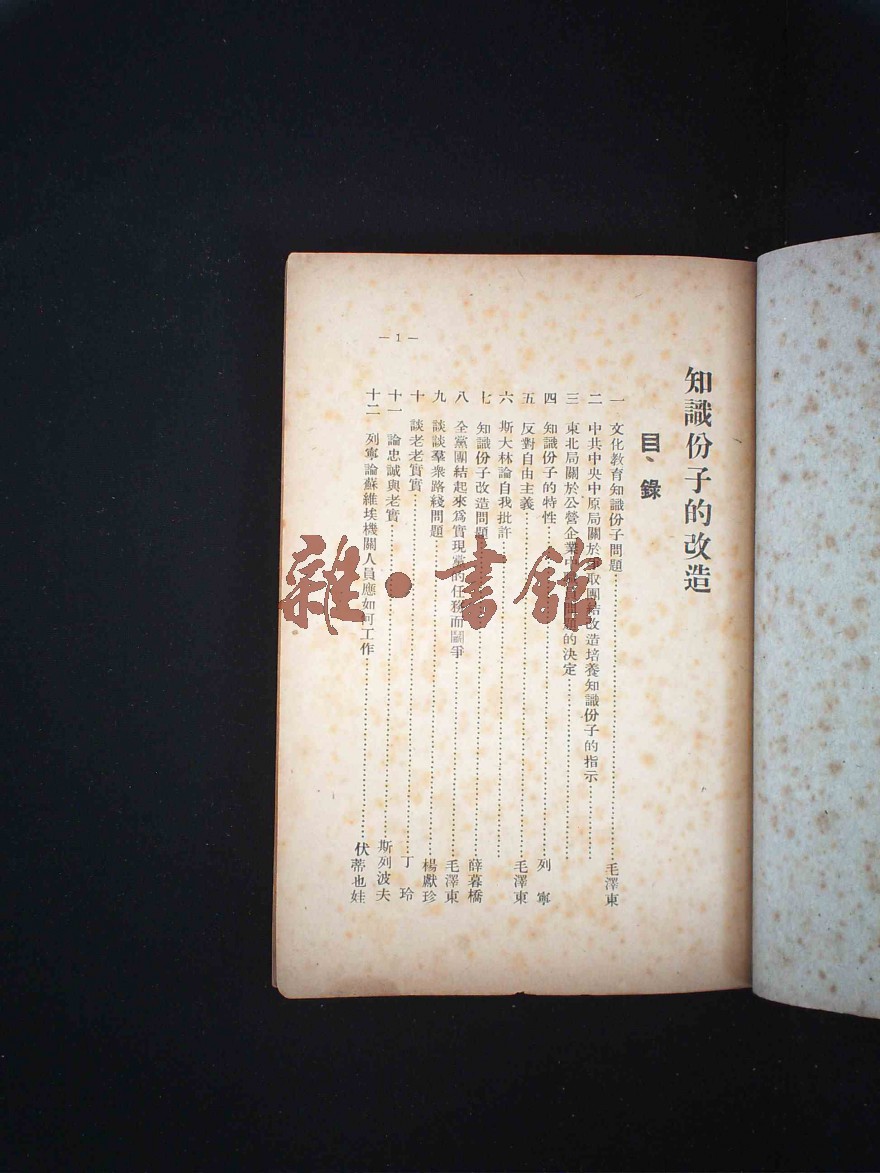 知識份子的改造
目錄
一 文化教育知識份子問題 毛澤東
二 中共中央中原局關於爭取團結改造培養知識份子的指示
三 東北局關於公營企業中 問題的決定
四 知識份子的特性 列寧
五 反對自由主義 毛澤東
六 斯大林論自我批許
七 知識份子改造問題 薛暮橋
八 全黨團結起來為實現黨的任務而鬭爭 毛澤東
九 談談羣衆路綫問題 楊獻珍
十 談老老實實 丁玲
十一 論忠誠與老實 斯列波夫
十二 列寧論蘇維埃機關人員應如何工作 伏蒂也娃
—1—
雜·書館